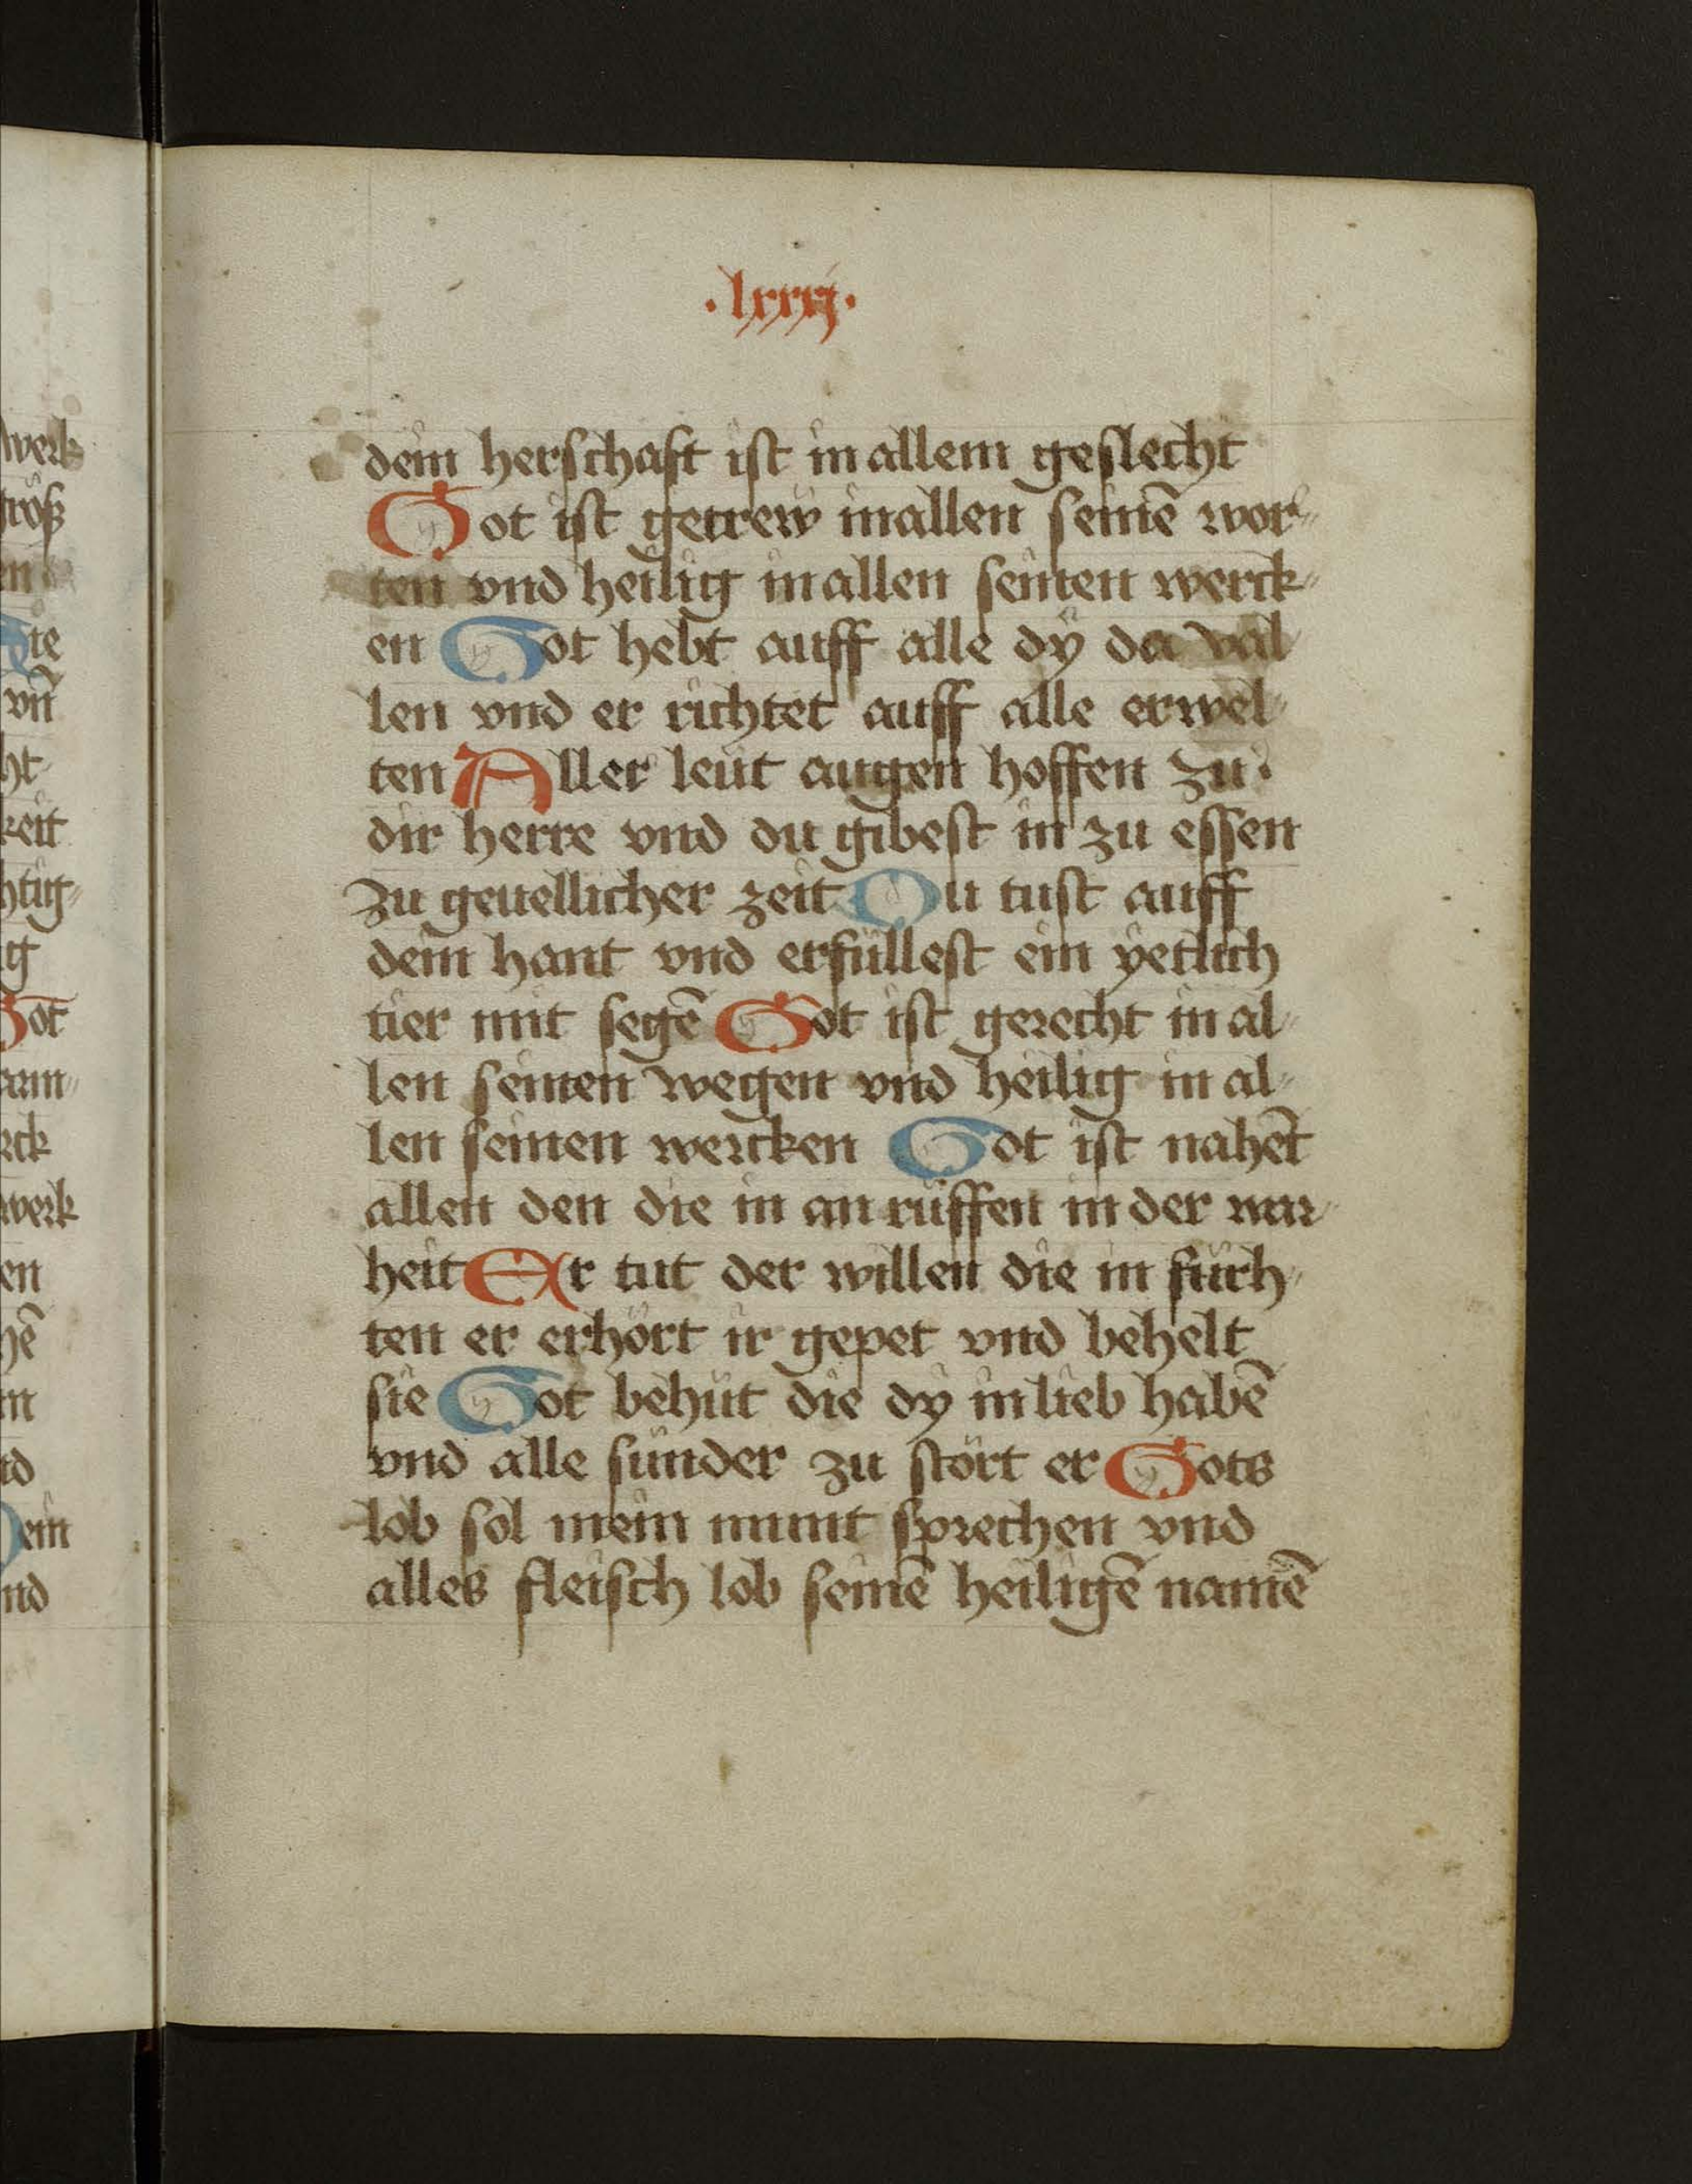 ·lxxxj·
dein herschaft ist in allem geslecht
Got ist getrew in allen seinē wor-
ten vnd heilig in allen seinen werck-
en Got hebt auff alle dÿ da val-
len vnd er richtet auff alle erwel-
ten Aller leüt augen hoffen zu·
dir herre vnd du gibest in zu essen
zu geuellicher zeit Du tust auff
dein hant vnd erfüllest ein ÿetlich
tier mit segē Got ist gerecht in al-
len seinen wegen vnd heilig in al-
len seinen wercken Got ist nahēt
allen den die in an rüffen in der war-
heit Er tut der willen die in fürch-
ten er erhört ir gepet vnd behelt
sie Got behüt die dÿ in lieb habē
vnd alle sünder zu stört er Gots
lob sol mein munt sprechen vnd
alles fleisch lob seinē heiligē namē